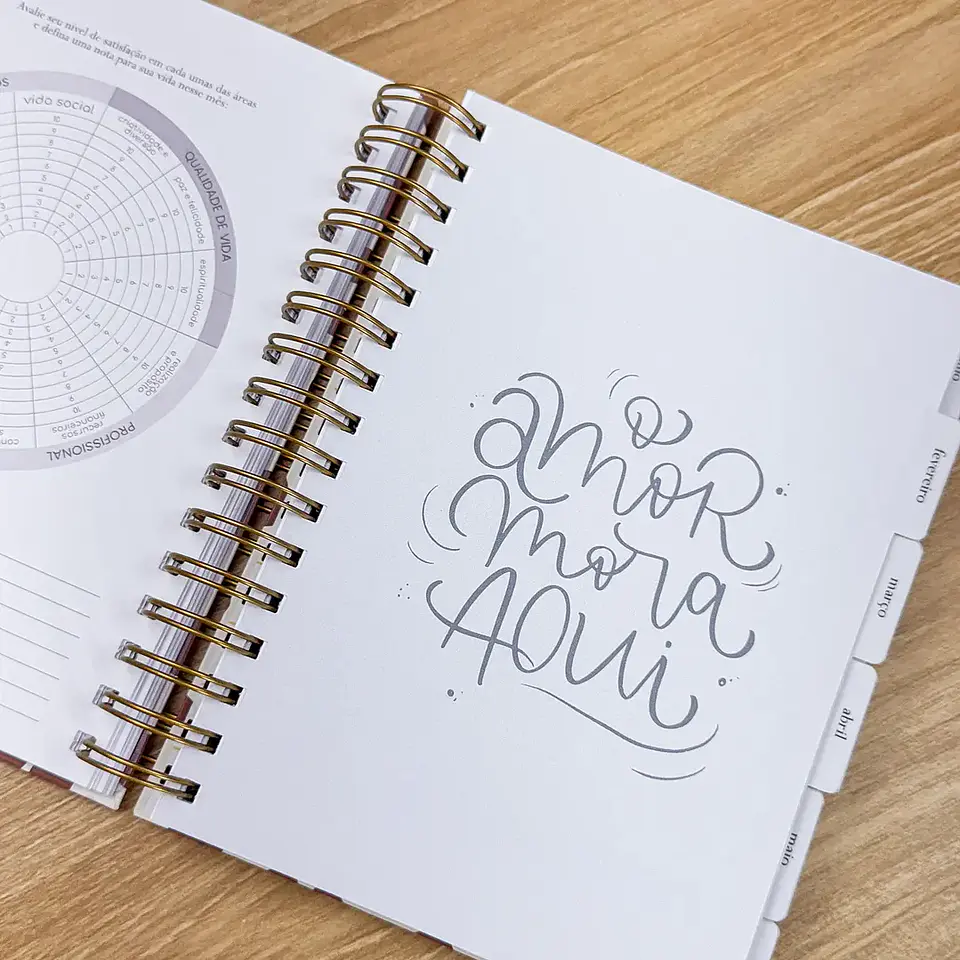 Avalie seu nível de satisfação em cada umas das áreas
e defina uma nota para sua vida nesse mês:
vida social
criatividade e
diversão
QUALIDADE DE VIDA
paz e felicidade
espiritualidade
realização
e propósito
recursos
financeiros
PROFISSIONAL
o
amor
mora
aqui
fevereiro
março
abril
maio